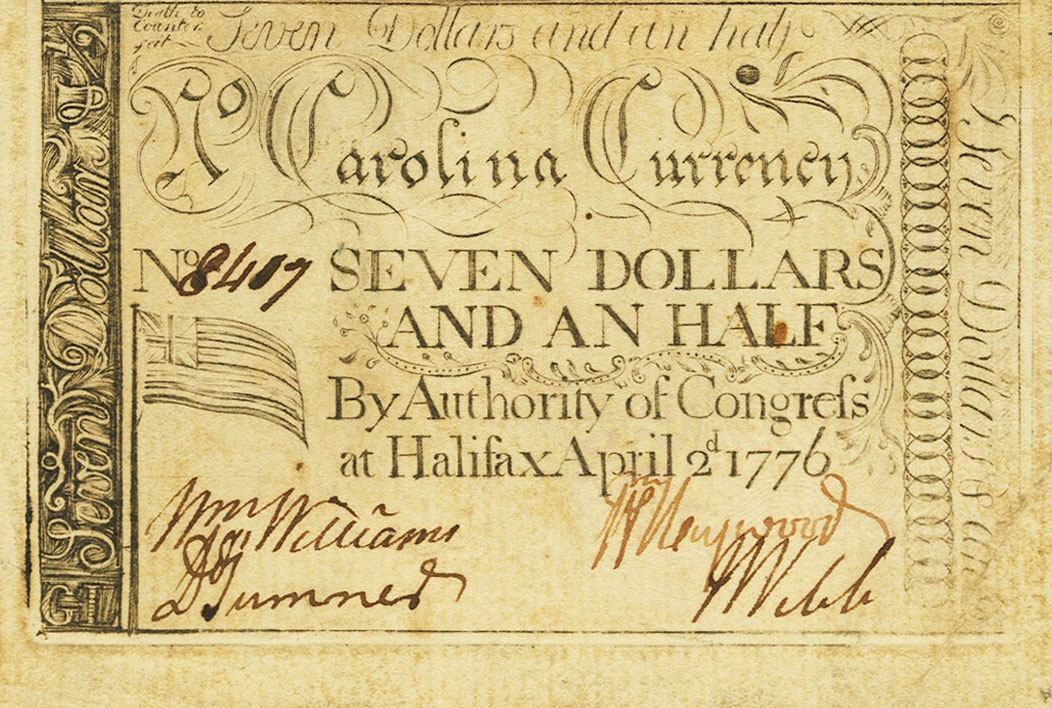 Death to
Counter
feit
Seven Dollars and an half
No Carolina Currency
No 8407 SEVEN DOLLARS
AND AN HALF
By Authority of Congreſs
at Halifax April 2d 1776
Wm Williams
W Haywood
Do Sumner
J Webb
Seven Dollars & 1/2
Seven Dollars & an